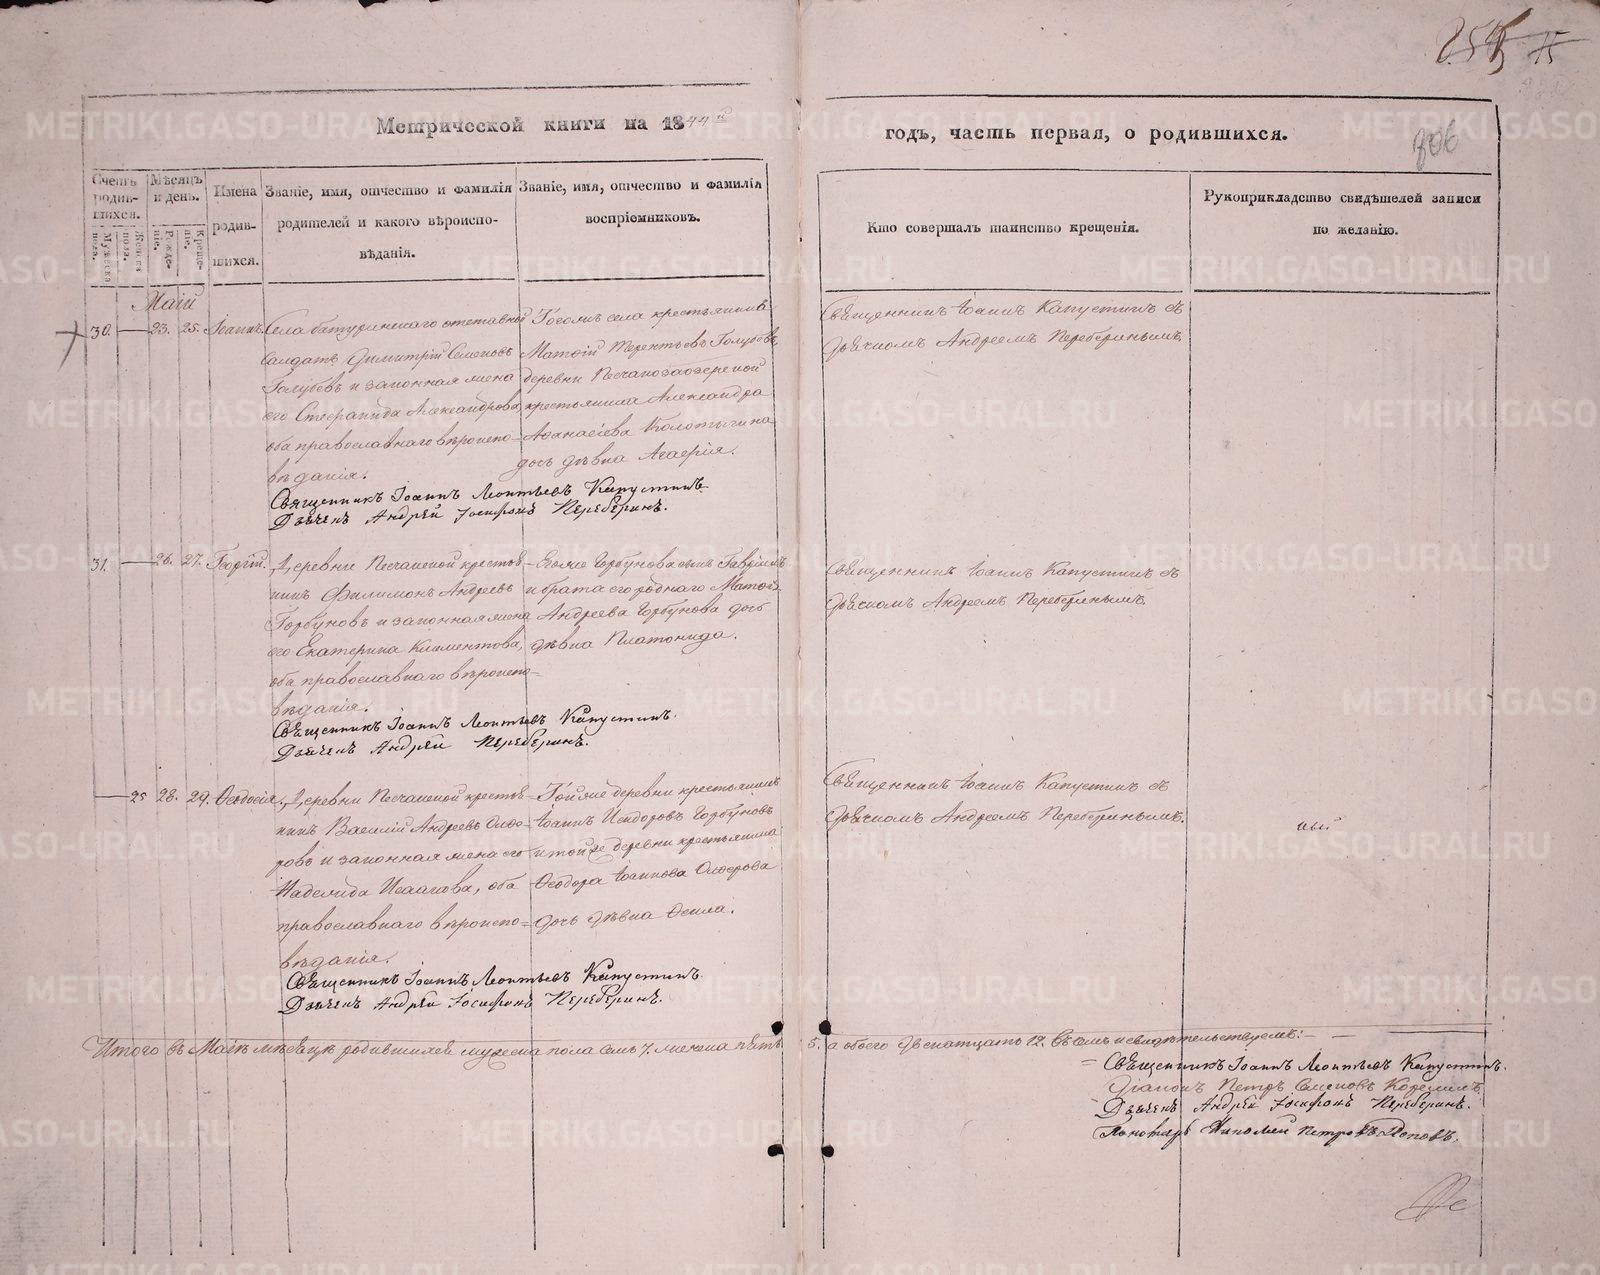 254 75
806
Метрической книги на 1844й
годъ, часть первая, о родившихся.
Счетъ родив-шихся.
Мужеска пола.
Женска пола.
Мѣсяцъ и день.
Рожде-ніе.
Креще-ніе.
Имена
родив-
шихся.
Званіе, имя, отчество и фамилія
родителей и какого вѣроиспо-
вѣданія.
Званіе, имя, отчество и фамилія
воспріемниковъ.
Кто совершалъ таинство крещенія.
Рукоприкладство свидѣтелей записи
по желанію.
Маій
30. 23. 25. Іоаннъ.
Села батуринскаго отставной
салдатъ Димитрій Семеновъ
Голубевъ и законная жена
его Стефанида Александрова,
оба православнаго вѣроиспо-
вѣданія.
Священникъ Іоаннъ Леонтьевъ Капустинъ.
Дьячекъ Андрей Іосифовъ Переберинъ.
Тогожъ села крестьянинъ
Матѳій Терентьевъ Голубевъ,
деревни Песчанозаозереной
крестьянина Александра
Аѳанасіева Колотыгина
дочь дѣвка Агаѳія.
Священникъ Іоаннъ Капустинъ съ
Дьячкомъ Андреемъ Переберинымъ.
31. 26. 27. Георгій.
Деревни Песчанской крестья-
нинъ Филимонъ Андреевъ
Горбуновъ и законная жена
его Екатерина Климентова,
оба православнаго вѣроиспо-
вѣданія.
Священникъ Іоаннъ Леонтьевъ Капустинъ.
Дьячекъ Андрей Переберинъ.
Егоже Горбунова сынъ Гавріилъ
и брата его роднаго Матѳія
Андреева Горбунова дочь
дѣвка Платонида.
Священникъ Іоаннъ Капустинъ съ
Дьячкомъ Андреемъ Переберинымъ.
25 28. 29. Ѳеодосія.
Деревни Песчанской крестья-
нинъ Василій Андреевъ
ровъ и законная жена его
Надежда Исаакова, оба
православнаго вѣроиспо-
вѣданія.
Священникъ Іоаннъ Леонтьевъ Капустинъ.
Дьячекъ Андрей Іосифовъ Переберинъ.
Тойже деревни крестьянинъ
Іоаннъ Исидоровъ Горбуновъ
и тойже деревни крестьянина
Ѳеодора Іоаннова
дочь дѣвка Ѳекла.
Священникъ Іоаннъ Капустинъ съ
Дьячкомъ Андреемъ Переберинымъ.
Итого въ Маіѣ мѣсяцѣ родившихся мужеска пола семь 7. женска пять 5. а обоего двенатцать 12. Въ семъ и свидѣтельствуемъ:
Священникъ Іоаннъ Леонтьевъ Капустинъ.
Діаконъ Петръ Семеновъ
Дьячекъ Андрей Іосифовъ Переберинъ.
Пономарь Николай Петровъ Поповъ.
METRIKI.GASO-URAL.RU